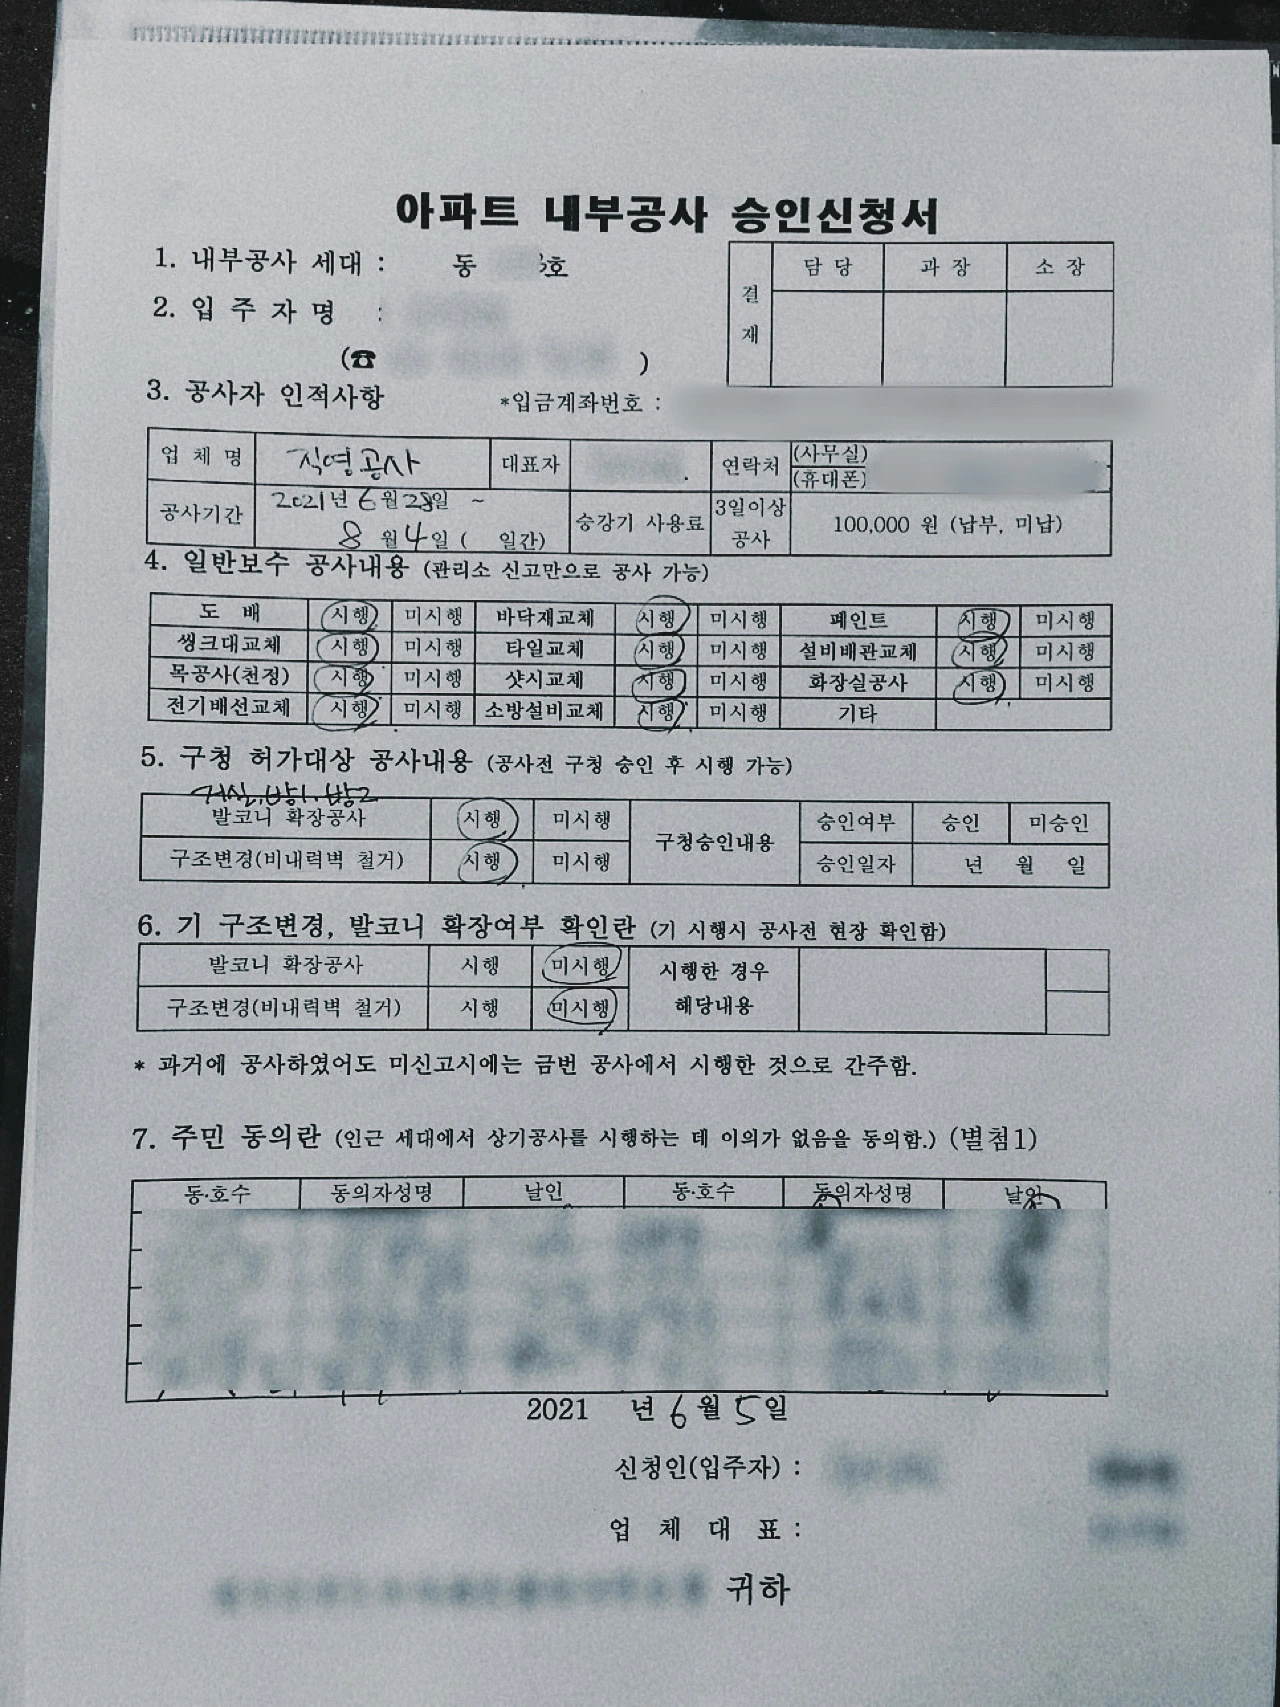 아파트 내부공사 승인신청서
1. 내부공사 세대 : 동 호
2. 입 주 자 명 :
(☎ )
결재 담 당 과 장 소 장
3. 공사자 인적사항 *입금계좌번호 :
업 체 명 직영공사 대표자 연락처 (사무실)
(휴대폰)
공사기간 2021년 6월 28일 ~
8월 4일 ( 일간) 승강기 사용료 3일이상 공사 100,000 원 (납부, 미납)
4. 일반보수 공사내용 (관리소 신고만으로 공사 가능)
도 배 시행 미시행 바닥재교체 시행 미시행 페인트 시행 미시행
씽크대교체 시행 미시행 타일교체 시행 미시행 설비배관교체 시행 미시행
목공사(천정) 시행 미시행 샷시교체 시행 미시행 화장실공사 시행 미시행
전기배선교체 시행 미시행 소방설비교체 시행 미시행 기타
5. 구청 허가대상 공사내용 (공사전 구청 승인 후 시행 가능)
거실, 방1, 방2
발코니 확장공사 시행 미시행 구청승인내용 승인여부 승인 미승인
구조변경(비내력벽 철거) 시행 미시행 승인일자 년 월 일
6. 기 구조변경, 발코니 확장여부 확인란 (기 시행시 공사전 현장 확인함)
발코니 확장공사 시행 미시행 시행한 경우
구조변경(비내력벽 철거) 시행 미시행 해당내용
* 과거에 공사하였어도 미신고시에는 금번 공사에서 시행한 것으로 간주함.
7. 주민 동의란 (인근 세대에서 상기공사를 시행하는 데 이의가 없음을 동의함.) (별첨1)
동·호수 동의자성명 날인 동·호수 동의자성명 날인
2021 년 6월 5일
신청인(입주자) :
업 체 대 표 :
귀하